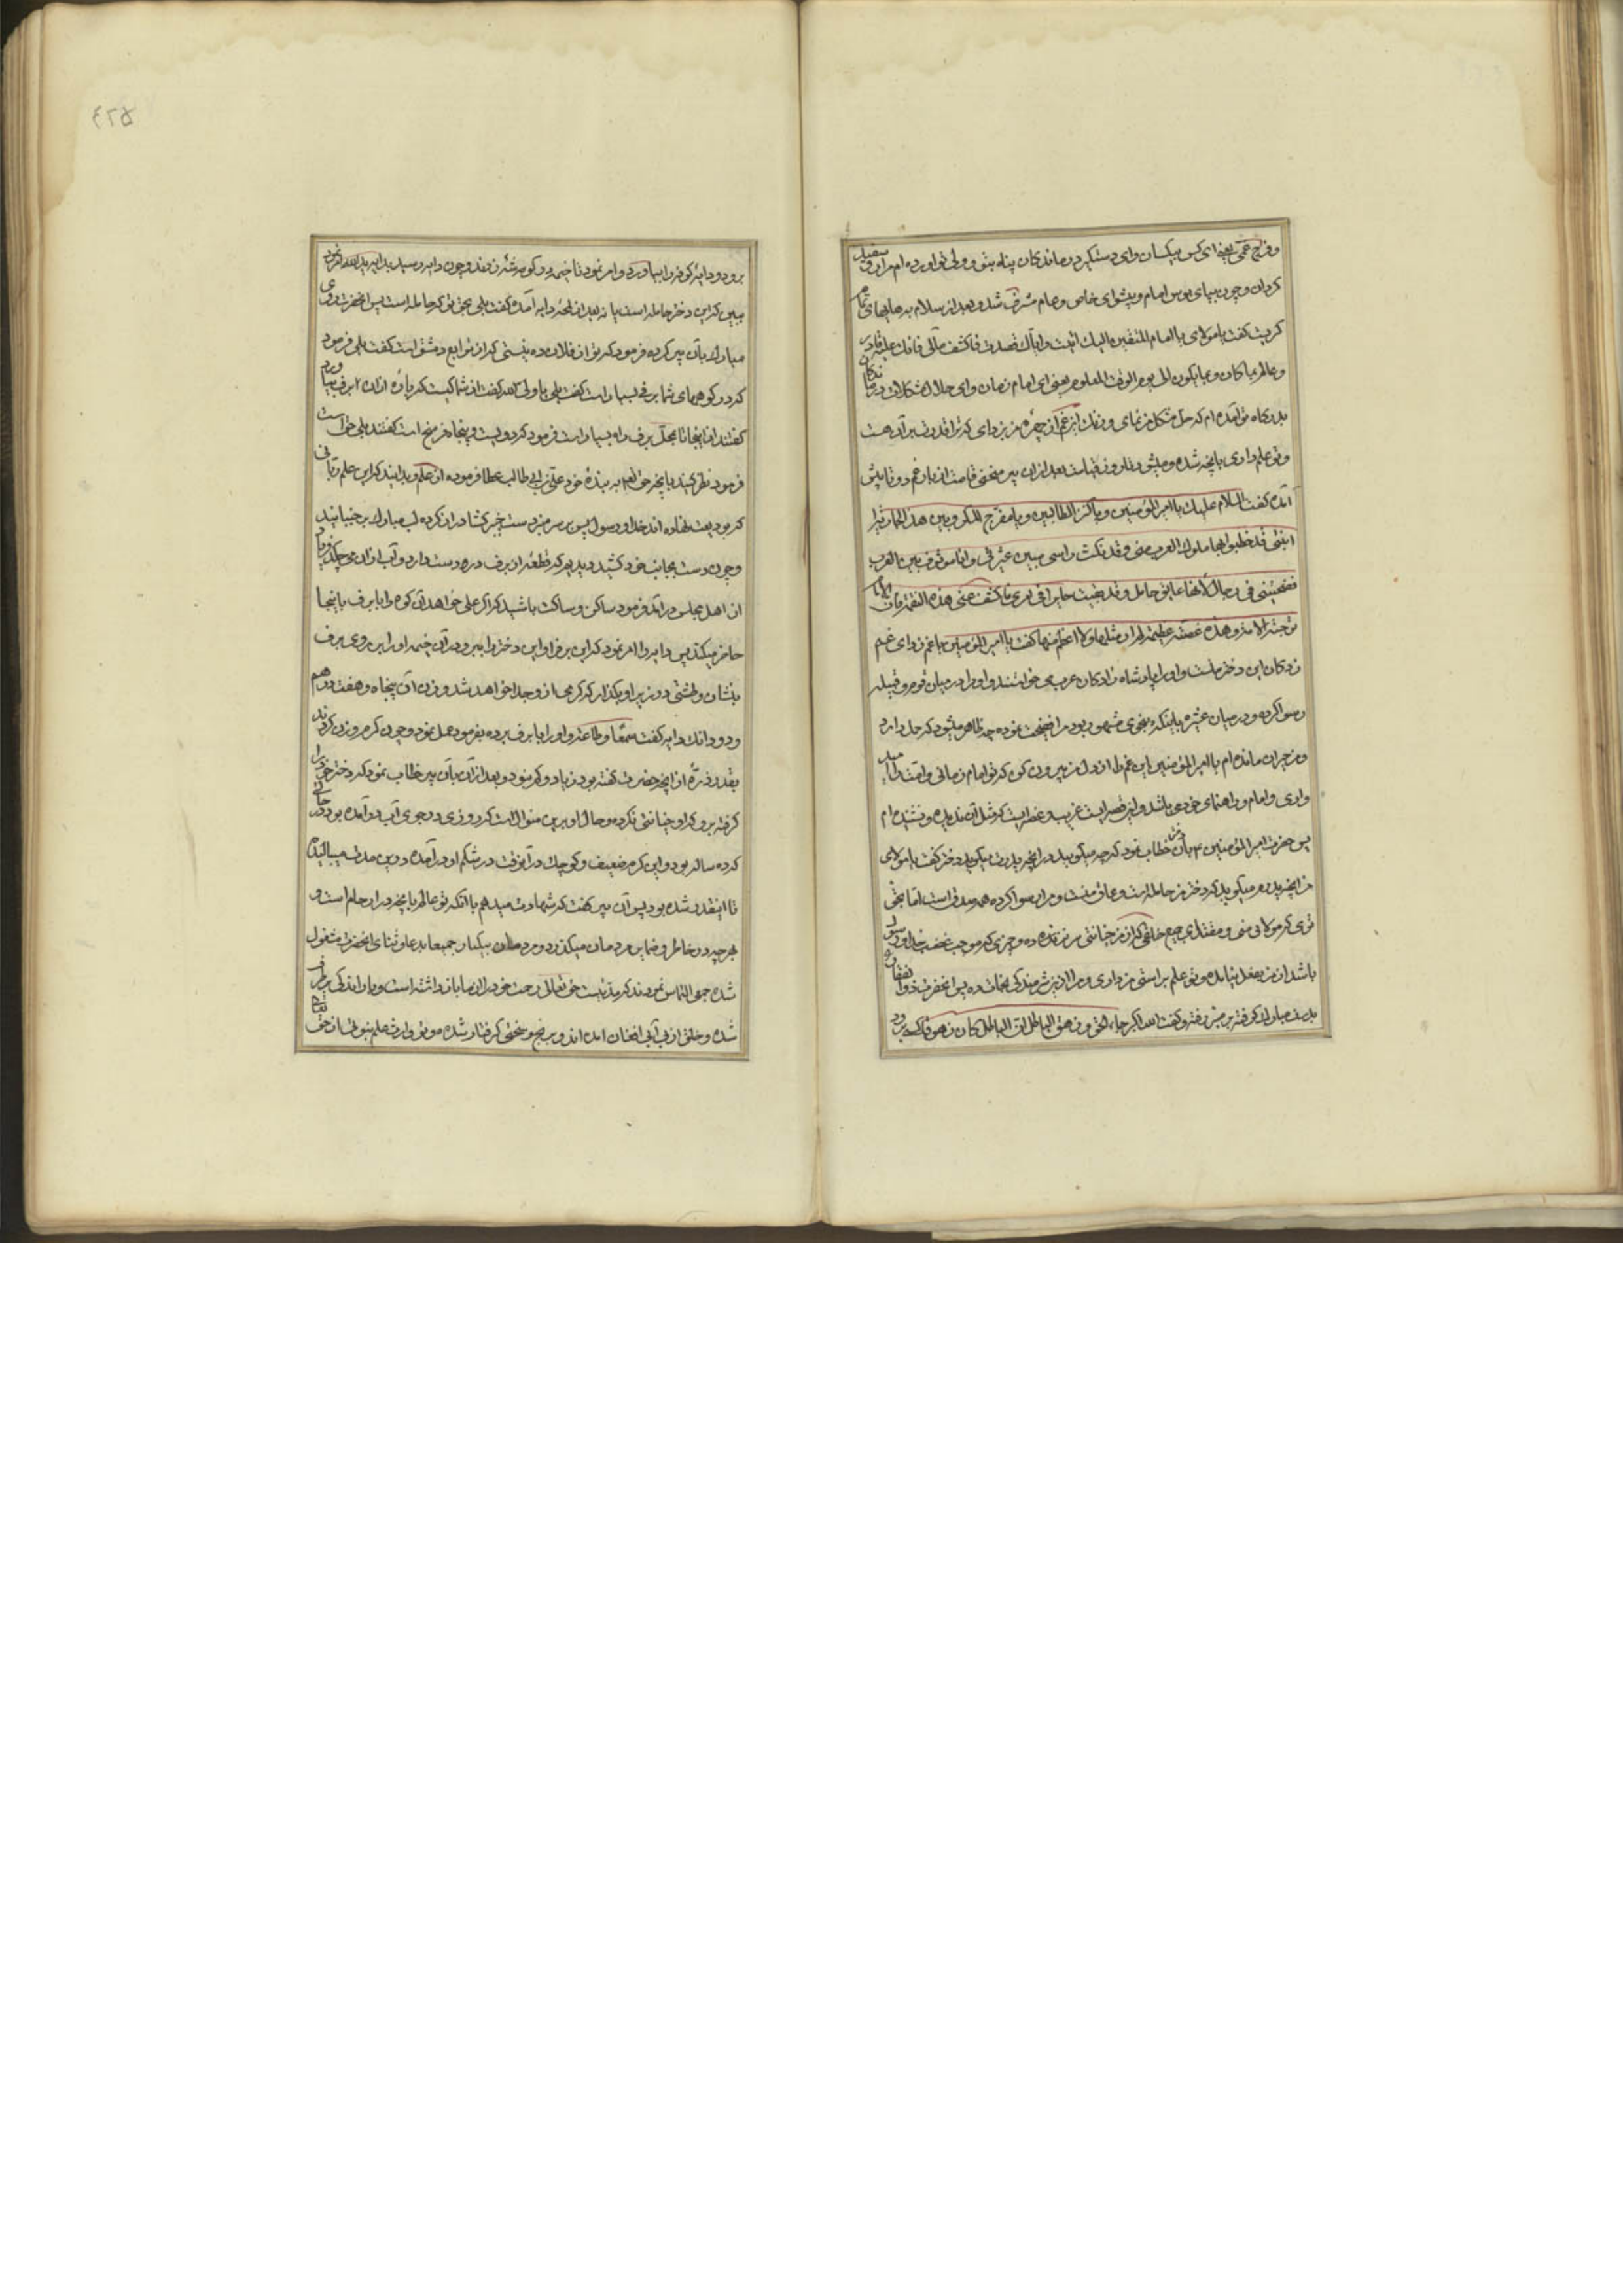 و فرج غمی یعنی ای کس بیکسان و ای دستگیر درماندگان پناه بتو و روی بتو آورده ام مرا رو سفید
گردان و چون بپای بوس امام و پیشوای خاص و عام مشرف شد و بعد از سلام به هایهای تمام
گریست گفت یا مولای یا امام المتقین الیک اتیت و ایاک قصدت فاکشف مآلی فانک علیه قادر
و عالم بما کان و بما یکون الی یوم الوقت المعلوم یعنی ای امام زمان و ای حلال مشکلات درماندگان
بدرگاه تو آمده ام که حل مشکل من نمای و زنک این غم از چهره من بزدای که ترا قدرت بر آن هست
و تو علم داری بانچه شده و میشود تا روز قیامت بعد از ان پیر منحنی قامت از بار غم دوتا پیش
آمده گفت السلام علیک یا امیر المؤمنین و یا کنز الطالبین و یا مفرج الکروبین هذه الجاریة
ابنتی قد خطبوا بها ملوک العرب منی و قد نکست راسی بین عشیرتی و انا موصوف بین العرب
فضحتنی فی رجال لانها عاتق حامل و قد بقیت حایرا فی امری فاکشف عنی هذه الغمة فان الامام
ترجیه الامه و هذه غصة عظیمة لم ار مثلها و لا اعظم منها گفت یا امیر المؤمنین یا غم زدای غم
زدگان این دختر منست و او را پادشاه زادگان عرب می خواستند و او مرا در میان قوم و قبیله
رسوا کرده و در میان عشیره با آنکه بنحوی مشهور بودم مرا فضیحت نموده چه ظاهر میشود که حمل دارد
و من حیران مانده ام یا امیر المؤمنین این غم را از دل من بیرون کن که تو امام زمانی و امت را امید
واری و امام و راهنمای خود می باشد و این قصه ایست غریب و غصه ایست که مثل آن ندیده و نشنیده ام
پس حضرت امیر المؤمنین ع بآن دختر خطاب نمود که چه میگویید در آنچه پدرت میگوید دختر گفت یا مولای
من آنچه پدرم میگوید که دختر من حامله است و عاق منست و مرا رسوا کرده همه صدق است اما بحق
تو که مولای منی و مقتدای جمیع خلقی که از من خیانتی سر نزده و چیزی که موجب غضب خدا و رسول
باشد از من بفعل نیامده و تو علم بر راستی من داری و مرا ازین شرمندگی نجات ده پس آنحضرت ذو الفقار
بدست مبارک گرفته بر منبر رفته و گفت الله اکبر جاء الحق و زهق الباطل ان الباطل کان زهوقا کسی برود
برود و دایهٔ کوفه را بیاورد و امر نمود تا خیمه در گوشه زدند و چون دایه رسید بدایه
ببین که این دختر حامله است یا نه بعد از لحظه دایه آمده گفت بلی بحق تو که حامله است پس آنحضرت روی
مبارک بآن پیر کرده فرمود که تو از فلان ده نیستی که از توابع دمشق است گفت بلی فرمود
که در کوههای شما برف بسیار است گفت بلی یا ولی الله گفت از شما کیست که پاره از ان برف بیاورد
گفتند از اینجا تا بمحل برف راه بسیار است فرمود که دویست و پنجاه فرسخ است گفتند بلی چنین است
فرمود نظر کنید بانچه حق تعالی به بندهٔ خود علی بن ابی طالب عطا فرموده از علم و بدانید که این علم ربانی
که بودیعت نهاده اند خدا و رسول پس بر سر منبر دست خیبر گشا دراز کرده لب مبارک بر جنبانید
و چون دست بجانب خود کشید دیدیم که قطعه از برف در دست دارد و آب از ان می چکد فریاد
از اهل مجلس در آمد فرمود ساکن و ساکت باشید که اگر علی خواهد آن کوه را با برف باینجا
حاضر میکند پس دایه را امر نمود که این برف را و این دختر را ببر و در آن خیمه او را بر روی برف
بنشان و طشتی در زیر او بگذار که کرمی از و جدا خواهد شد و وزن آن پنجاه و هفت درهم
و دو دانک دایه گفت سمعا و طاعة و او را با برف برده بفرموده عمل نمود و چون کرم را وزن کردند
بقدر ذره از آنچه حضرت گفته بود زیاد و کم نبود و بعد از آن بآن پیر خطاب نمود که دختر خود را
گرفته برو که او خیانتی نکرده و حال او برین منوال است که روزی در جوی آب در آمده بود در حالی
که ده ساله بود و این کرم ضعیف و کوچک در آنوقت در شکم او در آمده در این مدت میبالیده
تا اینقدر شده بود پس آن پیر گفت که شهادت میدهم با آنکه تو عالم بانچه در ارحام است و
بهر چه در خاطر و ضمایر مردمان میگذرد و مردمان بیکبار جمیعا بدعا و ثنای آنحضرت مشغول
شده جمعی التماس نمودند که مدتیست حق تعالی رحمت خود را از ما باز داشته است و باران اندکی برطرف
شده و خلق از بی آبی بفغان آمده اند و برنج و سختی گرفتار شده و تو وارث علم نبوتی از حق تعالی
٥٢٣